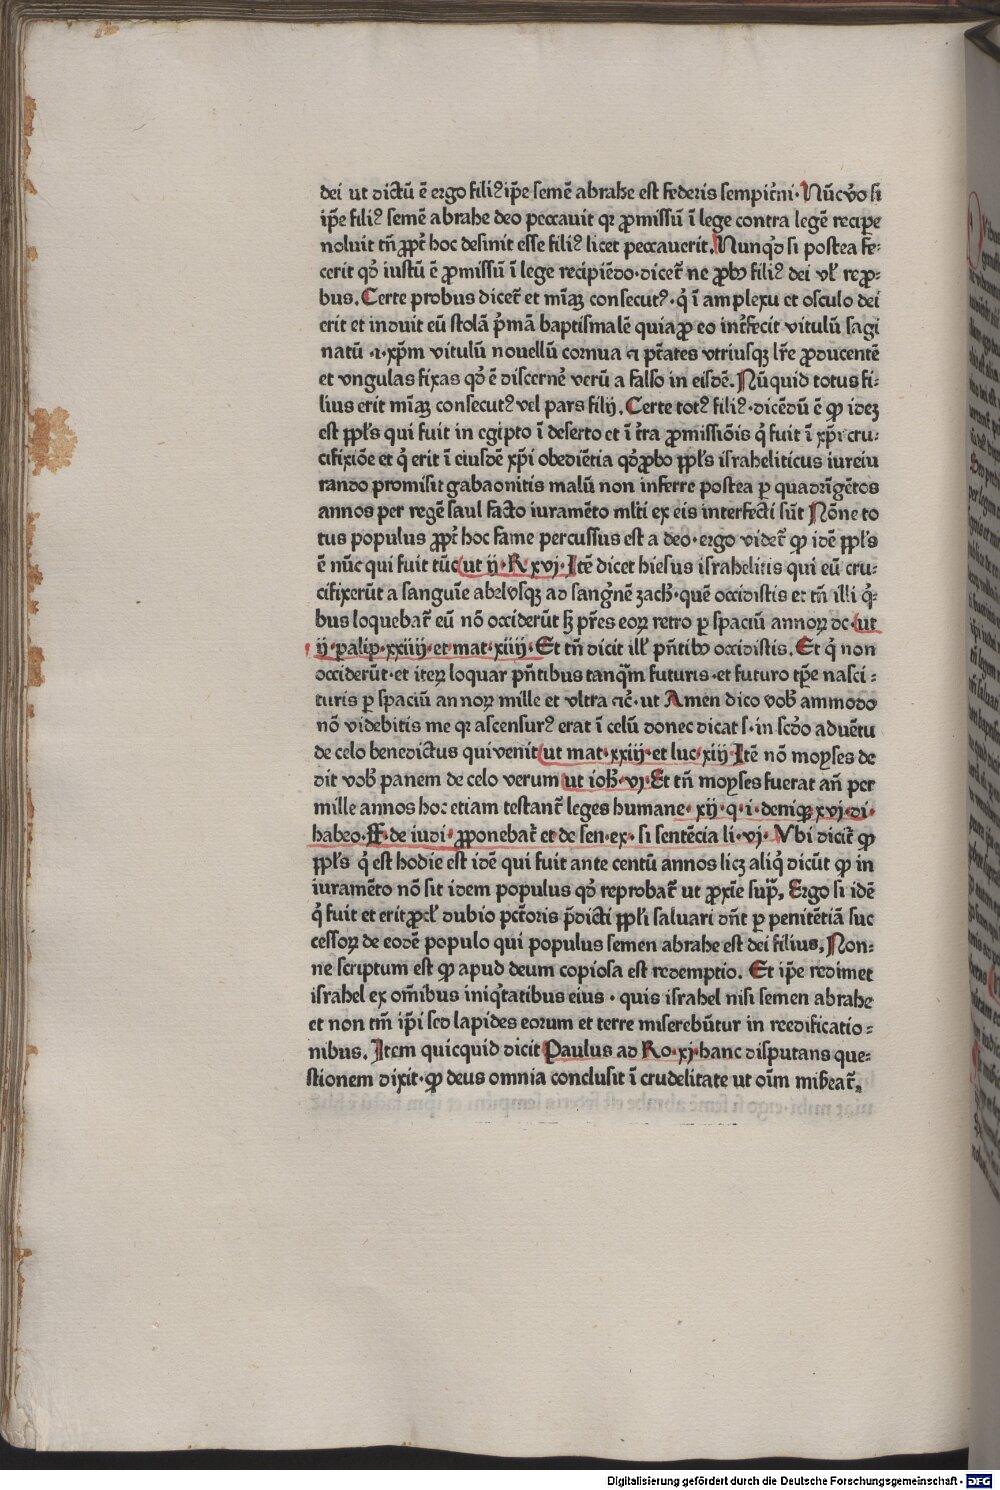 dei ut dictū ē ergo filiꝰ ip̄e semē abrahe est federis sempit̄ni· Nūc v̄o si
ip̄e filiꝰ semē abrahe deo peccauit qꝛ ꝓmissū ī lege contra legē recipe
noluit tn̄ ꝓpt̄ hoc desinit esse filiꝰ licet peccauerit. Nunqͥd si postea fe-
cerit qd̓ iustū ē ꝓmissū ī lege recipiēdo· dicet̄ ne ꝓbꝰ filiꝰ dei vl̓ repꝓ-
bus. Certe probus dicet̄ et mīaꝫ consecutꝰ· qͥ ī amplexu et osculo dei
erit et induit eū stolā pͥmā baptismalē quia ꝓ eo int̄fecit vitulū sagi
natū ·i· xp̄m vitulū nouellū cornua ⁊ pt̄ates vtriusqꝫ lr̄e ꝓducentē
et vngulas fixas qd̓ ē discerne̓ verū a falso in eisdē. Nūquid totus fi-
lius erit mīaꝫ consecutꝰ vel pars filij. Certe totꝰ filiꝰ· dicēdū ē ꝙ ideꝫ
est ppl̓s qui fuit in egipto ī deserto et ī t̄ra ꝓmissiōis qͥ fuit ī xp̄i cru-
cifixiōe et qͥ erit ī eiusdē xp̄i obediētia qd̓ ꝓbo ppl̓s israheliticus iureiu
rando promisit gabaonitis malū non inferre postea ꝑ quadrīgētos
annos per regē saul facto iuramēto ml̓ti ex eis interfecti sūt Nōne to
tus populus ꝓpt̄ hoc fame percussus est a deo· ergo videt̄ ꝙ idē ppl̓s
ē nūc qui fuit tūc ut ij· R xvj· Itē dicet hiesus israhelitis qui eū cru-
cifixerūt a sanguīe abel vsqꝫ ad sangͥnē zach̓· quē occidistis et tn̄ illi qͥ-
bus loquebat̄ eū nō occiderūt sꝫ pr̄es eoꝝ retro ꝑ spaciū annoꝝ dc· ut
ij· palip· xxiiij· et mat· xiiij· Et tn̄ dicit ill̓ pn̄tibꝰ occidistis. Et qͥ non
occiderūt· et iteꝝ loquar pn̄tibus tanqͣm futuris· et futuro tp̄e nasci-
turis ꝑ spaciū annoꝝ mille et vltra ⁊c̓· ut Amen dico vob̓ ammodo
nō videbitis me qꝛ ascensurꝰ erat ī celū donec dicat s· in scd̓o aduētu
de celo benedictus qui venit ut mat· xxiij· et luc· xiij Itē nō moyses de
dit vob̓ panem de celo verum ut ioh̓· vj· Et tn̄ moyses fuerat an̄ per
mille annos hoc etiam testant̄ leges humane· xij· q· i· deniqꝫ xvj· di·
habeo. ff· de iudi· ꝓponebat̄ et de sen· ex· si sentēcia li· vj· Vbi dicit̄ ꝙ
ppl̓s qͥ est hodie est idē qui fuit ante centū annos licꝫ aliqͥ dicūt ꝙ in
iuramēto nō sit idem populus qd̓ reprobat̄ ut ꝓxīe supͣ. Ergo si idē
qͥ fuit et erit ꝓcl̓ dubio pct̄oris p̄dicti ppl̓i saluari dn̄t ꝑ penitētiā suc
cessoꝝ de eodē populo qui populus semen abrahe est dei filius. Non-
ne scriptum est ꝙ apud deum copiosa est redemptio. Et ip̄e redimet
israhel ex om̄ibus iniqͥtatibus eius· quis israhel nisi semen abrahe
et non tm̄ ip̄i sed lapides eorum et terre miserebūtur in reedificatio-
nibus. Item quicquid dicit Paulus ad Ro· xj· hanc disputans que-
stionem dixit· ꝙ deus omnia conclusit ī crudelitate ut oīm misēat̄.
Digitalisierung gefördert durch die Deutsche Forschungsgemeinschaft - DFG